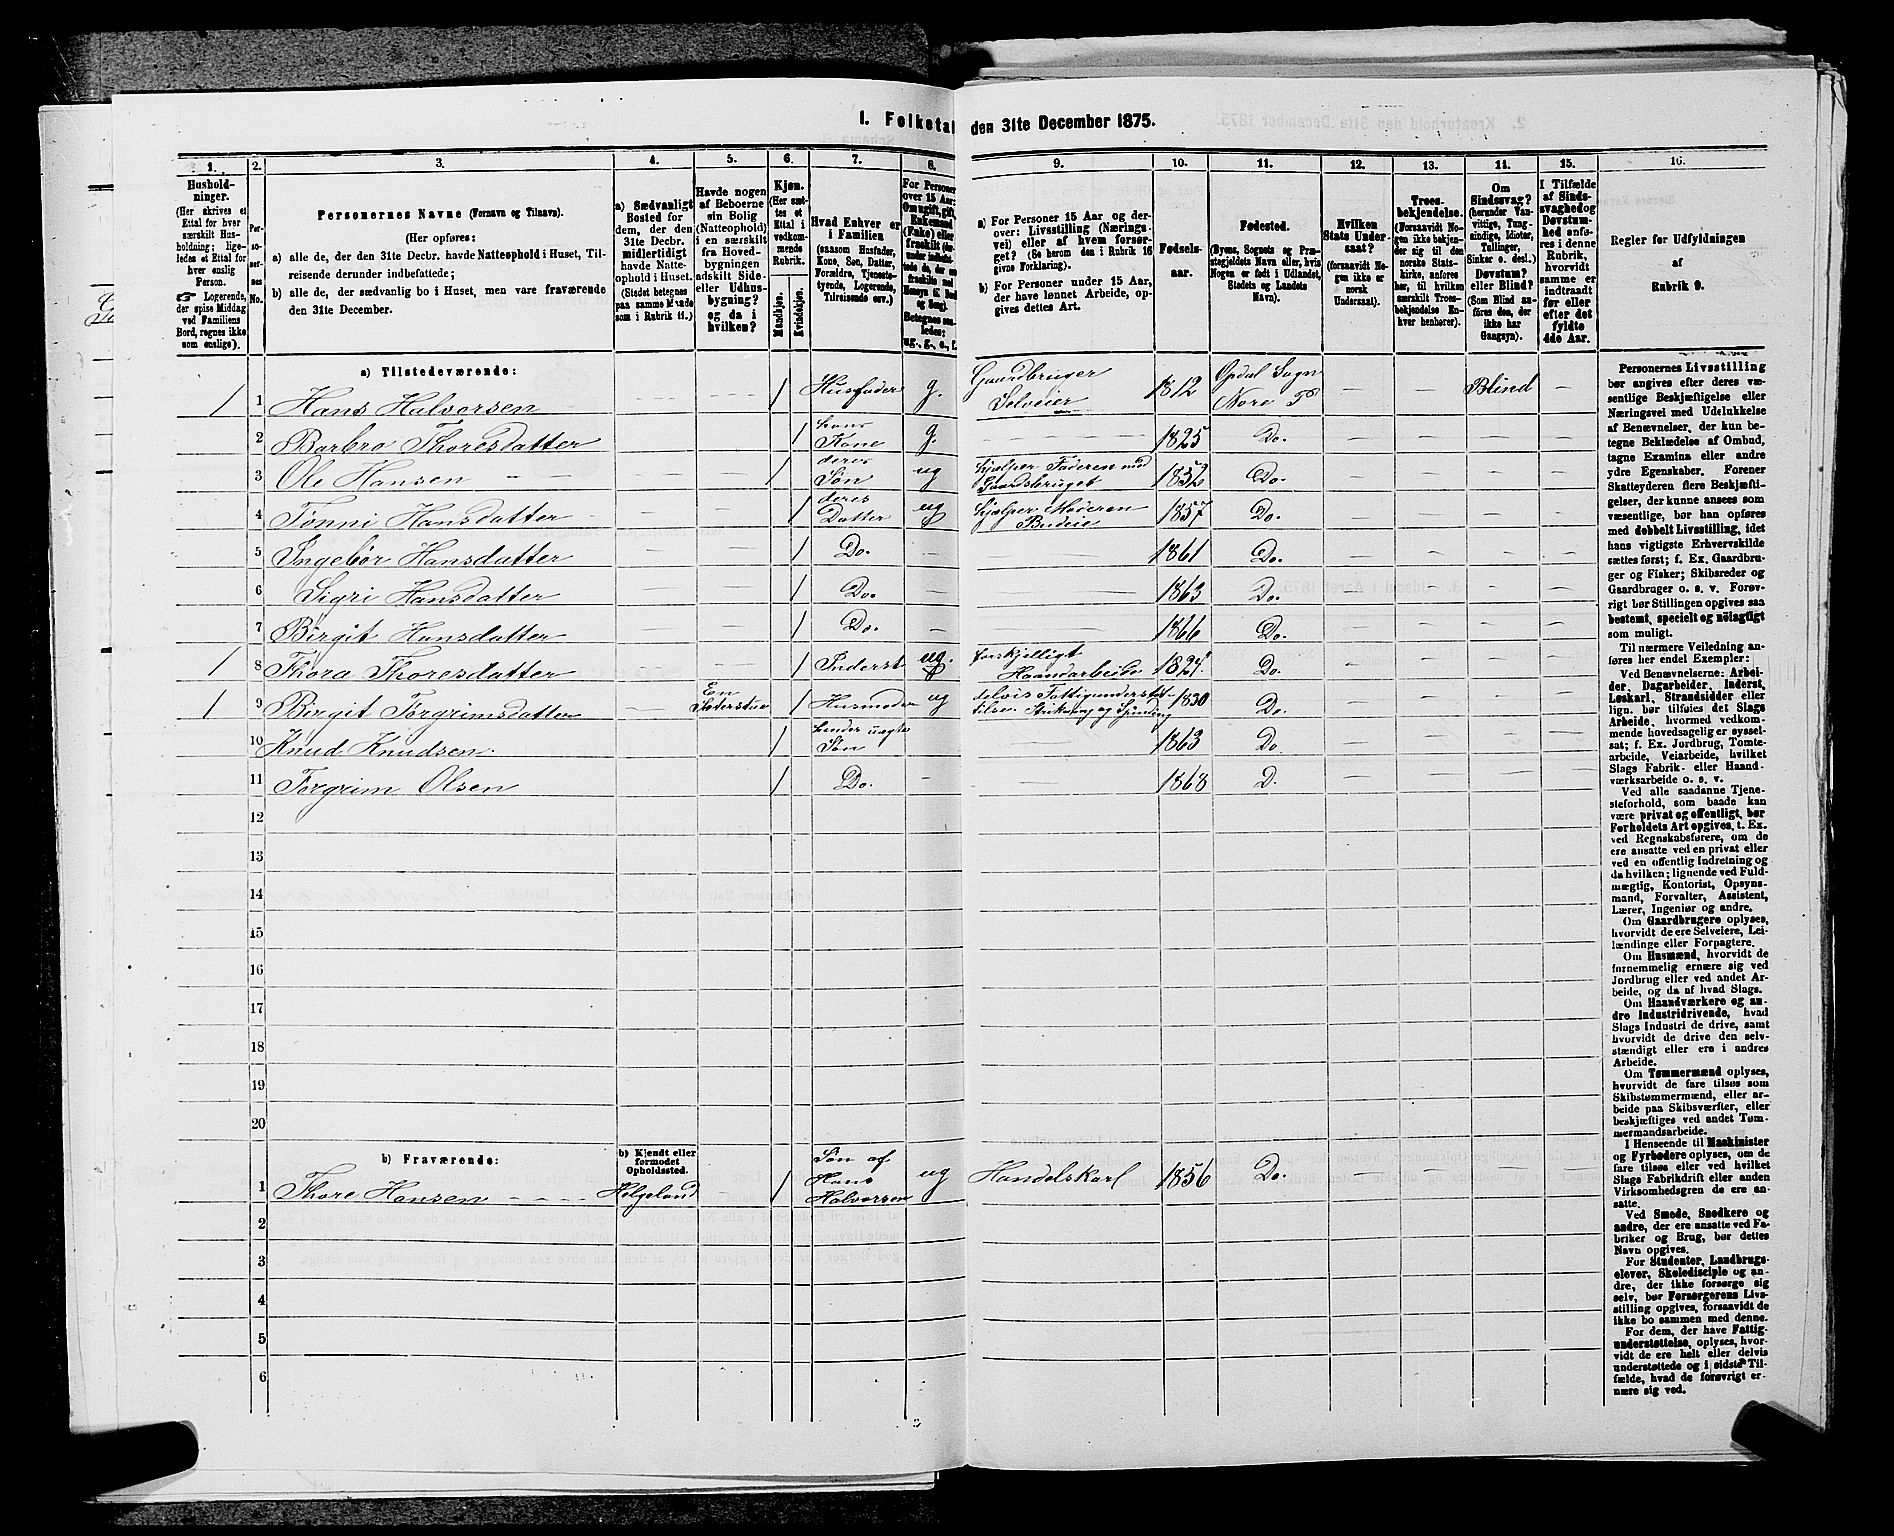 1. Folketal den 31te December 1875.
1. 2. 3. 4. 5. 6. 7. 8. 9. 10. 11. 12. 13. 14. 15. 16.
Hushold-
ninger.
(Her skrives et
Ettal for hver
særskilt Hus-
holdning; lige-
ledes et Ettal
for hver enslig
Person.
☞ Logerende,
der spise Middag
ved Familiens
Bord, regnes ikke
som enslige).
Per-
so-
ner-
nes
No.
Personernes Navne (Fornavn og Tilnavn).
(Her opføres:
a) alle de, der den 31te Decbr. havde Natteophold i Huset, Til-
reisende derunder indbefattede;
b) alle de, der sædvanlig bo i Huset, men vare fraværende
den 31te December.
a) Sædvanligt
Bosted for
dem, der den
31te Decbr.
midlertidigt
havde Natte-
ophold i Huset.
(Stedet betegnes
paa samme Maade
som i Rubrik 11.)
Havde nogen
af Beboerne
sin Bolig
(Natteophold)
i en særskilt
fra Hoved-
bygningen
adskilt Side-
eller Udhus-
bygning?
og da i
hvilken?
Kjøn.
(Her sæt-
tes et
Ettal i
vedkom-
mende
Rubrik.
Mandkjøn.
Kvindekjøn.
Hvad Enhver er
i Familien
(saasom Husfader,
Kone, Søn, Datter,
Forældre, Tjeneste-
tyende, Logerende,
Tilreisende osv.)
For Personer
over 15 Aar:
Om ugift, gift,
Enkemand
(Enke) eller
fraskilt
Betegnes saa-
ledes:
ug., g., e., f.
a) For Personer 15 Aar og der-
over: Livsstilling (Nærings-
vei) eller af hvem forsør-
get? (Se herom den i Rubrik 16
givne Forklaring).
b) For Personer under 15 Aar,
der have lønnet Arbeide, op-
gives dettes Art.
Fødsels-
aar.
Fødested.
(Byens, Sognets og Præ-
stegjeldets Navn eller, hvis
Nogen er født i Udlandet,
Stedets og Landets
Navn).
Hvilken
Stats Under-
saat?
(forsaavidt No-
gen ikke er
norsk
Undersaat).
Troes-
bekjendelse.
(Forsaavidt No-
gen ikke bekjen-
der sig til den
norske Stats-
kirke, anføres
her, til hvilken
særskilt Troes-
bekjendelse En-
hver henhører).
Om
Sindssvag?
(herunder Van-
vittige, Tung-
sindige, Idioter,
Tullinger,
Sinker o. desl.)
Døvstum?
eller Blind?
(Som Blind an-
føres den, der
ikke har
Gangsyn).
I Tilfælde
af Sinds-
svaghed og
Døvstum-
hed anfø-
res i denne
Rubrik,
hvorvidt
samme er
indtraadt
før eller
efter det
fyldte
4de Aar.
Regler for Udfyldningen
af
Rubrik 9.
a) Tilstedeværende:
1 1 Hans Halvorsen 1 Husfader g. Gaardbruger Selveier 1812 Opdal Sogn Nore P Blind
2 Barbro Thoresdatter 1 hans Kone g. 1825 Do.
3 Ole Hansen 1 deres Søn ug hjælper Faderen med Gaardsbruget 1852 Do.
4 Tønni Hansdatter 1 deres Datter ug hjælper Moderen Budeie 1857 Do.
5 Ingebør Hansdatter 1 Do. 1861 Do.
6 Sigri Hansdatter 1 Do. 1863 Do.
7 Birgit Hansdatter 1 Do. 1866 Do.
1 8 Thora Thoresdatter 1 Inderst ug. forskjelligt Haandarbeide 1827 Do.
1 9 Birgit Torgrimsdatter En Sæterstue 1 Husmoder ug delvis Fattigunderstøt- telse Strikning og Spinding 1830 Do.
10 Knud Knudsen. 1 hendes uægte Søn 1863 Do
11 Torgrim Olsen 1 Do. 1868 D.
12
13
14
15
16
17
18
19
20
b) Fraværende:
b) Kjendt eller
formodet
Opholdssted.
1 Thore Hansen Helgeland 1 Søn af Hans Halvorsen ug Handelskarl 1856 Do.
2
3
4
5
6
Personernes Livsstilling
bør angives efter deres væ-
sentlige Beskjæftigelse eller
Næringsvei med Udelukkelse
af Benævnelser, der kun be-
tegne Beklædelse af Ombud,
tagne Examina eller andre
ydre Egenskaber. Forener
Skatteyderen flere Beskjæfti-
gelser, der kunne ansees som
væsentlige, bør han opføres
med dobbelt Livsstilling, idet
hans vigtigste Erhvervskilde
sættes først; f. Ex. Gaardbru-
ger og Fisker; Skibsreder og
Gaardbruger o. s. v. Forøv-
rigt bør Stillingen opgives saa
bestemt, specielt og nøiagtigt
som muligt.
Til nærmere Veiledning an-
føres her endel Exempler:
Ved Benævnelserne: Arbei-
der, Dagarbeider, Inderst,
Løskarl, Strandsidder eller
lign. bør tilføies det Slags
Arbeide, hvormed vedkom-
mende hovedsagelig er syssel-
sat; f. Ex. Jordbrug, Tomte-
arbeide, Veiarbeide, hvilket
Slags Fabrik- eller Haand-
værksarbeide o. s. v.
Ved alle saadanne Tjene-
steforhold, som baade kan
være privat og offentligt, bør
Forholdets Art opgives, t. Ex.
ved Regnskabsførere, om de
ere ansatte ved en privat eller
ved en offentlig Indretning og
da hvilken; lignende ved Fuld-
mægtig, Kontorist, Opsyns-
mand, Forvalter, Assistent,
Lærer, Ingeniør og andre.
Om Gaardbrugere oplyses,
hvorvidt de ere Selveiere, Lei-
lændinge eller Forpagtere.
Om Husmænd, hvorvidt de
fornemmelig ernære sig ved
Jordbrug eller ved andet Ar-
beide, og da af hvad Slags.
Om Haandværkere og an-
dre Industridrivende, hvad
Slags Industri de drive, samt
hvorvidt de drive den selv-
stændigt eller ere i andres
Arbeide.
Om Tømmermænd oplyses,
hvorvidt de fare tilsøs som
Skibstømmermænd, eller ar-
beide paa Skibsværfter, eller
beskjæftiges ved andet Tøm-
mermandsarbeide.
I Henseende til Maskinister
og Fyrbødere oplyses, om de
fare tilsøs eller ved hvilket
Slags Fabrikdrift eller anden
Virksomhedsgren de ere an-
satte.
Ved Smede, Snedkere og
andre, der ere ansatte ved Fa-
briker og Brug, bør dettes
Navn opgives.
For Studenter, Landbrugs-
elever, Skoledisciple og an-
dre, der ikke forsørge sig
selv, bør Forsørgerens Livs-
stilling opgives, forsaavidt de
ikke bo sammen med denne.
For dem, der have Fattig-
understøttelse, oplyses, hvor-
vidt de ere helt eller delvis
understøttede og i sidste Til-
fælde, hvad de forøvrigt er-
nære sig ved.